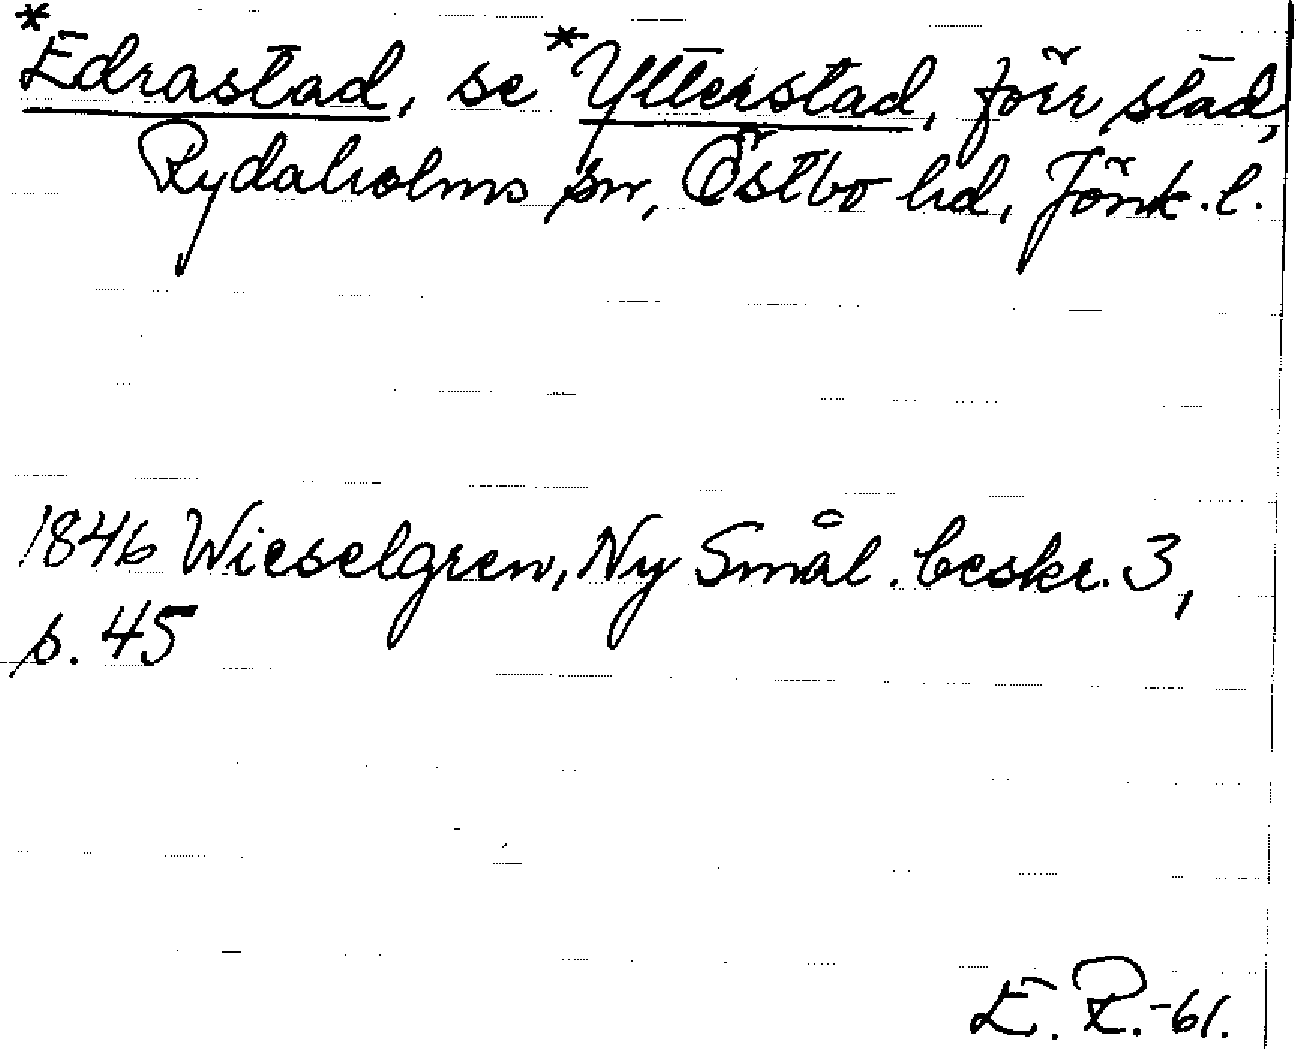 *Edrastad, se *Ytterstad, förr stad,
Rydaholms sn, Östbo hd, Jönk. l.
1846 Wieselgren, Ny Smål. beskr. 3,
s. 45
E. R.-61.